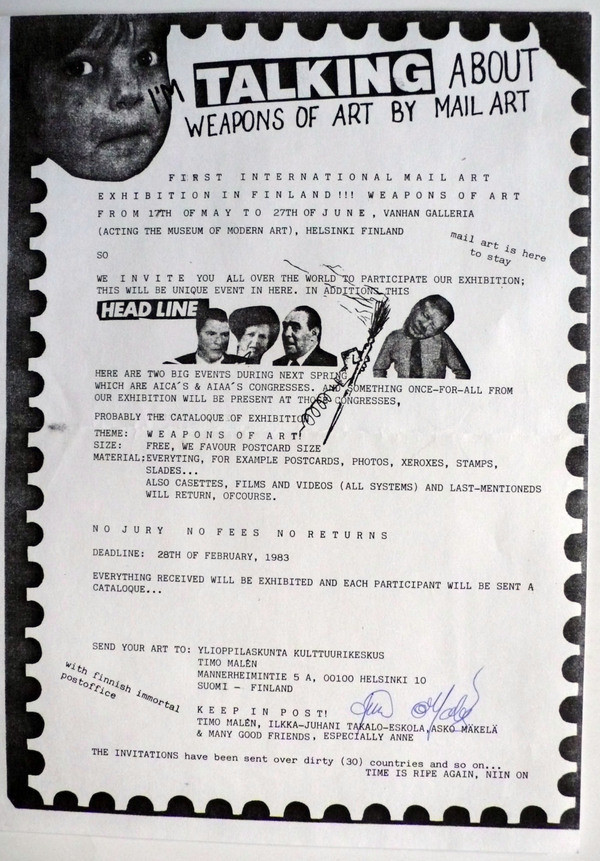 I'M TALKING ABOUT
WEAPONS OF ART BY MAIL ART
FIRST INTERNATIONAL MAIL ART
EXHIBITION IN FINLAND!!! WEAPONS OF ART
FROM 17TH OF MAY TO 27TH OF JUNE, VANHAN GALLERIA
(ACTING THE MUSEUM OF MODERN ART), HELSINKI FINLAND
mail art is here
to stay
SO
WE INVITE YOU ALL OVER THE WORLD TO PARTICIPATE OUR EXHIBITION;
THIS WILL BE UNIQUE EVENT IN HERE. IN ADDITIONS THIS
HEAD LINE
HERE ARE TWO BIG EVENTS DURING NEXT SPRING
WHICH ARE AICA´S & AIAA´S CONGRESSES. AND SOMETHING ONCE-FOR-ALL FROM
OUR EXHIBITION WILL BE PRESENT AT THOSE CONGRESSES,
PROBABLY THE CATALOQUE OF EXHIBITION
THEME: WEAPONS OF ART!
SIZE: FREE, WE FAVOUR POSTCARD SIZE
MATERIAL:EVERYTING, FOR EXAMPLE POSTCARDS, PHOTOS, XEROXES, STAMPS,
SLADES...
ALSO CASETTES, FILMS AND VIDEOS (ALL SYSTEMS) AND LAST-MENTIONEDS
WILL RETURN, OFCOURSE.
NO JURY NO FEES NO RETURNS
DEADLINE: 28TH OF FEBRUARY, 1983
EVERYTHING RECEIVED WILL BE EXHIBITED AND EACH PARTICIPANT WILL BE SENT A
CATALOQUE...
SEND YOUR ART TO: YLIOPPILASKUNTA KULTTUURIKESKUS
TIMO MALÉN
MANNERHEIMINTIE 5 A, 00100 HELSINKI 10
SUOMI - FINLAND
with finnish immortal
postoffice
KEEP IN POST!
TIMO MALÉN, ILKKA-JUHANI TAKALO-ESKOLA,ASKO MÄKELÄ
& MANY GOOD FRIENDS, ESPECIALLY ANNE
THE INVITATIONS have been sent over dirty (30) countries and so on...
TIME IS RIPE AGAIN, NIIN ON